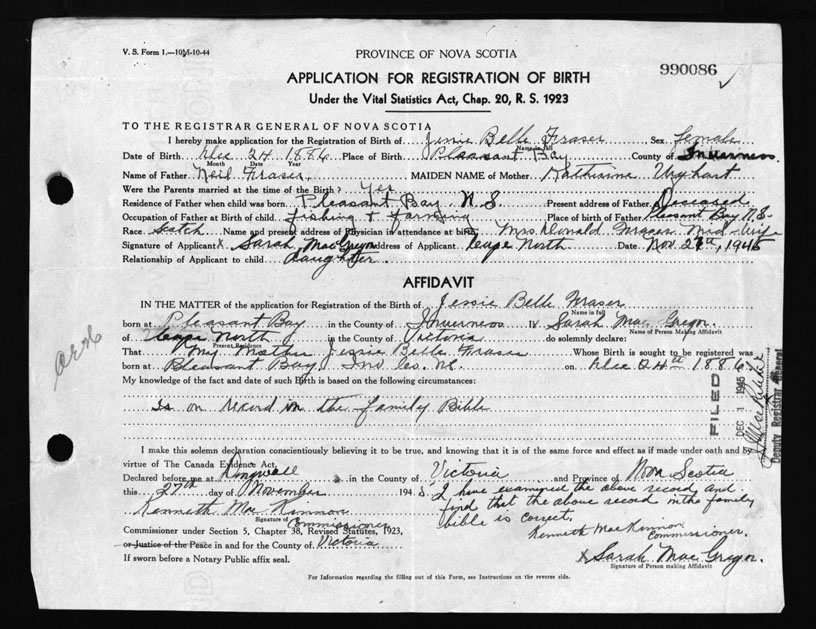 V. S. Form 1.—10M-10-44
PROVINCE OF NOVA SCOTIA
990086
APPLICATION FOR REGISTRATION OF BIRTH
Under the Vital Statistics Act, Chap. 20, R. S. 1923
TO THE REGISTRAR GENERAL OF NOVA SCOTIA
I hereby make application for the Registration of Birth of Jessie Belle Fraser Sex female
Name in full
Date of Birth Dec 24 1886 Place of Birth Pleasant Bay County of Inverness
Month Date Year
Name of Father Neil Fraser MAIDEN NAME of Mother Katherine Urquhart
Were the Parents married at the time of the Birth? Yes
Residence of Father when child was born Pleasant Bay N. S. Present address of Father Deceased
Occupation of Father at Birth of child fishing & farming Place of birth of Father Pleasant Bay N.S.
Race Scotch Name and present address of Physician in attendance at birth Mrs. Donald Fraser Mid-wife
Signature of Applicant X Sarah MacGregor Address of Applicant Cape North Date Nov. 27th, 1945
Relationship of Applicant to child daughter.
AFFIDAVIT
IN THE MATTER of the application for Registration of the Birth of Jessie Belle Fraser
Name in full
born at Pleasant Bay in the County of Inverness I, Sarah MacGregor.
Name of Person Making Affidavit
of Cape North in the County of Victoria do solemnly declare:
Present Residence
That My Mother Jessie Belle Fraser Whose Birth is sought to be registered was
born at Pleasant Bay, Inv. Co. N.S. on Dec 24th 1886
My knowledge of the fact and date of such Birth is based on the following circumstances:
Is on record in the family Bible
FILED
DEC 1 1945
Deputy Registrar General
I make this solemn declaration conscientiously believing it to be true, and knowing that it is of the same force and effect as if made under oath and by
virtue of The Canada Evidence Act.
Declared before me at Dingwall in the County of Victoria and Province of Nova Scotia
this 27th day of November 1945
I have examined the above record, and
find that the above record in the family
bible is correct.
Kenneth MacKinnon
Commissioner.
Kenneth MacKinnon
Signature of Commissioner
Commissioner under Section 5, Chapter 38, Revised Statutes, 1923,
or Justice of the Peace in and for the County of Victoria
If sworn before a Notary Public affix seal.
X Sarah MacGregor.
Signature of Person making Affidavit
For Information regarding the filling out of this Form, see Instructions on the reverse side.